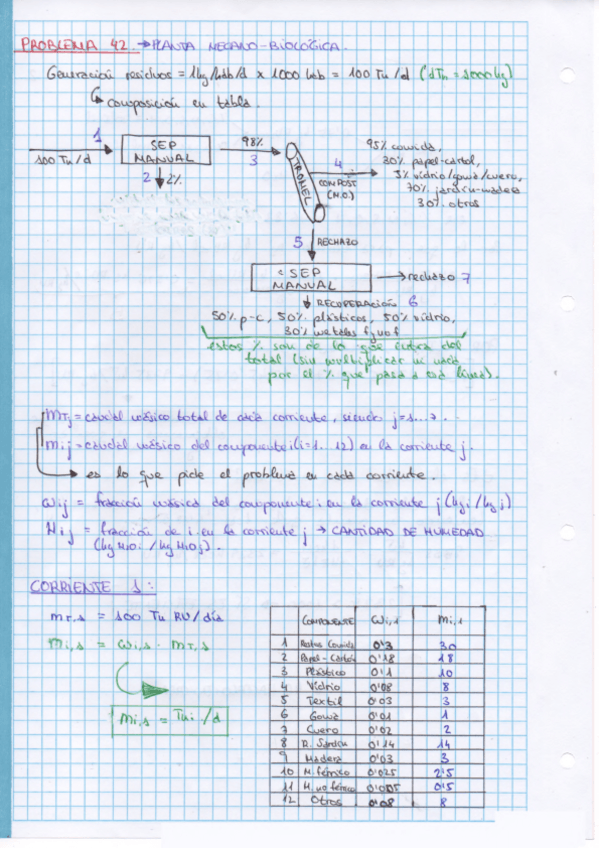 PROBLEMA 42. → PLANTA MECANO-BIOLÓGICA.
Generación residuos = 1kg/hab/d x 1000 hab = 100 Tn/d (1Tn = 1000kg)
composición en tabla.
1
100 Tn/d
SEP MANUAL
2 2%
98%
3
TROMEL
4
COMPOST
(M.O.)
95% comida,
30% papel-cartol,
5% vidrio/goma/cuero,
70% jardin-madera
30% otros
5 RECHAZO
SEP
MANUAL
→ rechazo 7
RECUPERACIÓN 6
50% p-c, 50% plásticos, 50% vidrio,
30% metales f y no f
estos % son de lo que entra del
total (sin multiplicar ni nada
por el % que pasa a esa línea).
mTj = caudal másico total de cada corriente, siendo j=1...7.
mij = caudal másico del componente i (i=1...12) en la corriente j.
→ es lo que pide el problema en cada corriente.
ωij = fracción másica del componente i en la corriente j (kgi/kgj)
Hij = fracción de i en la corriente j → CANTIDAD DE HUMEDAD
(kgH2Oi/kgH2Oj).
CORRIENTE 1:
mT,1 = 100 Tn RU/día
mi,1 = ωi,1 · mT,1
mi,1 = Tni/d
COMPONENTE ωi,1 mi,1
1 Restos Comida 0'3 30
2 Papel-Cartón 0'18 18
3 Plástico 0'1 10
4 Vidrio 0'08 8
5 Textil 0'03 3
6 Goma 0'01 1
7 Cuero 0'02 2
8 R. Jardín 0'14 14
9 Madera 0'03 3
10 M. férrico 0'025 2'5
11 M. no férrico 0'005 0'5
12 Otros 0'08 8